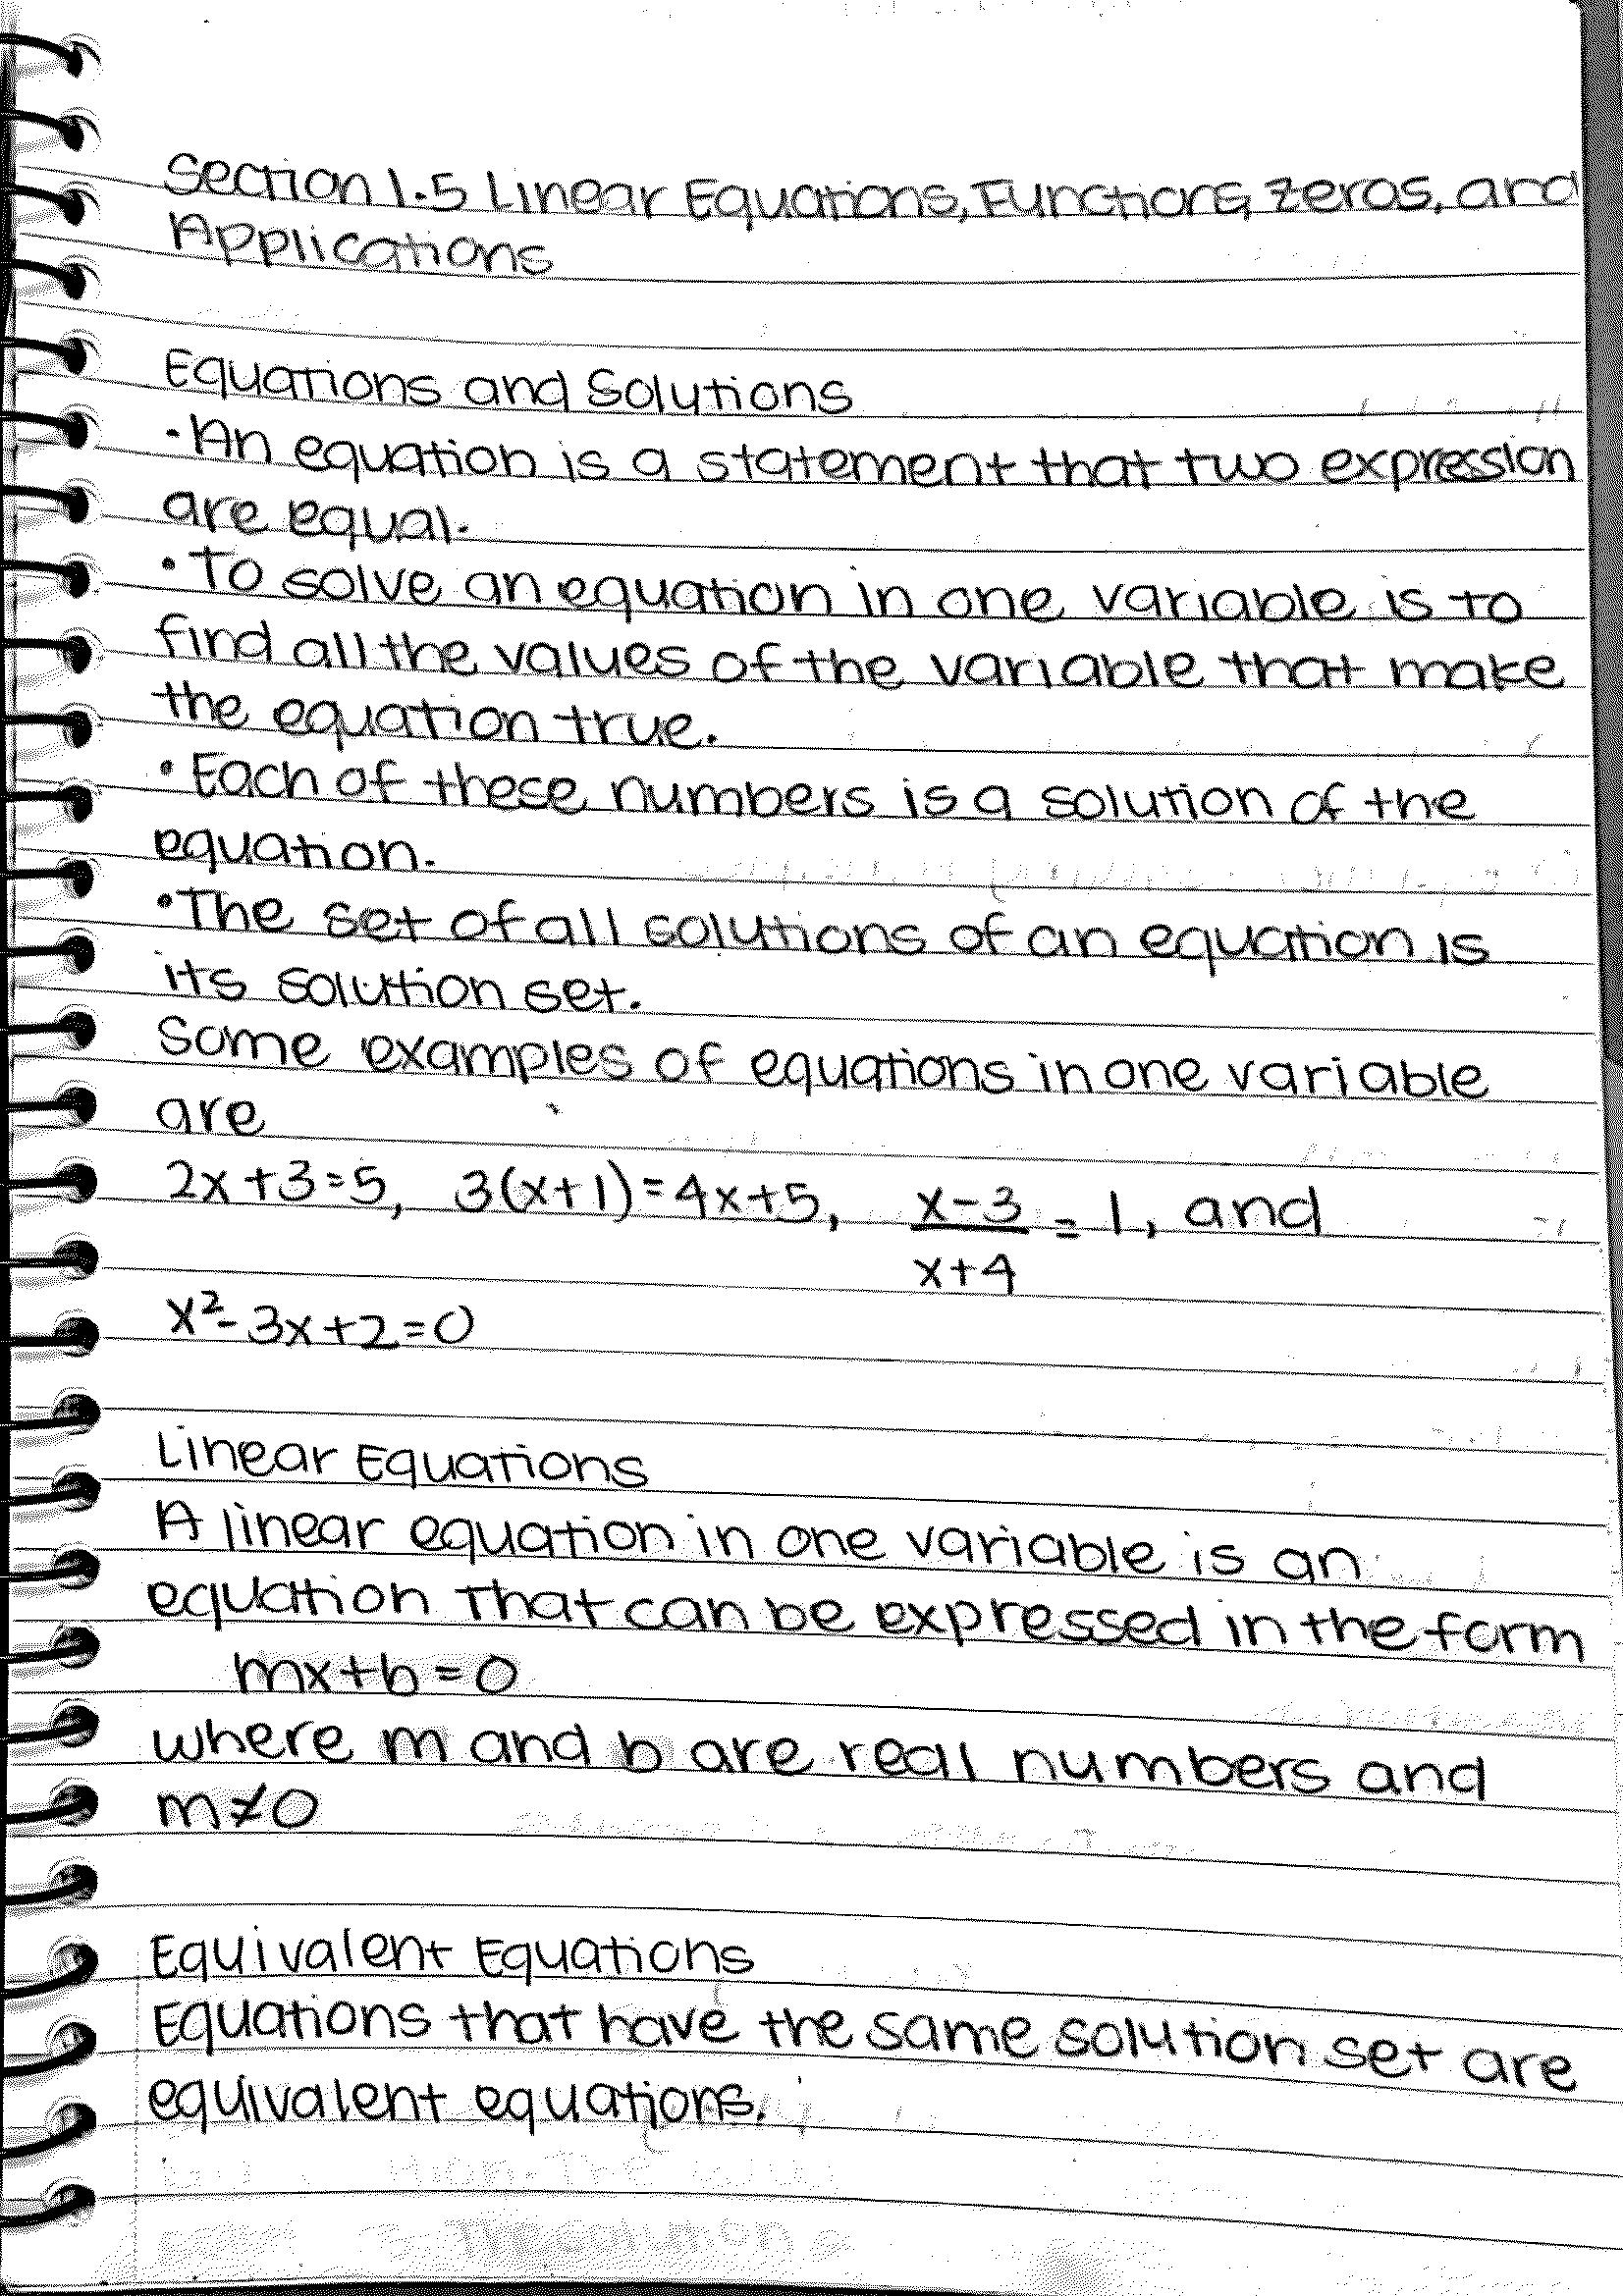 Section 1.5 Linear Equations, Functions, Zeros, and
Applications
Equations and Solutions
·An equation is a statement that two expression
are equal.
·To solve an equation in one variable is to
find all the values of the variable that make
the equation true.
·Each of these numbers is a solution of the
equation.
·The set of all solutions of an equation is
its solution set.
Some examples of equations in one variable
are
2x+3=5, 3(x+1)=4x+5, x-3/x+4 = 1, and
x²-3x+2=0
Linear Equations
A linear equation in one variable is an
equation that can be expressed in the form
mx+b=0
where m and b are real numbers and
m≠0
Equivalent Equations
Equations that have the same solution set are
equivalent equations.